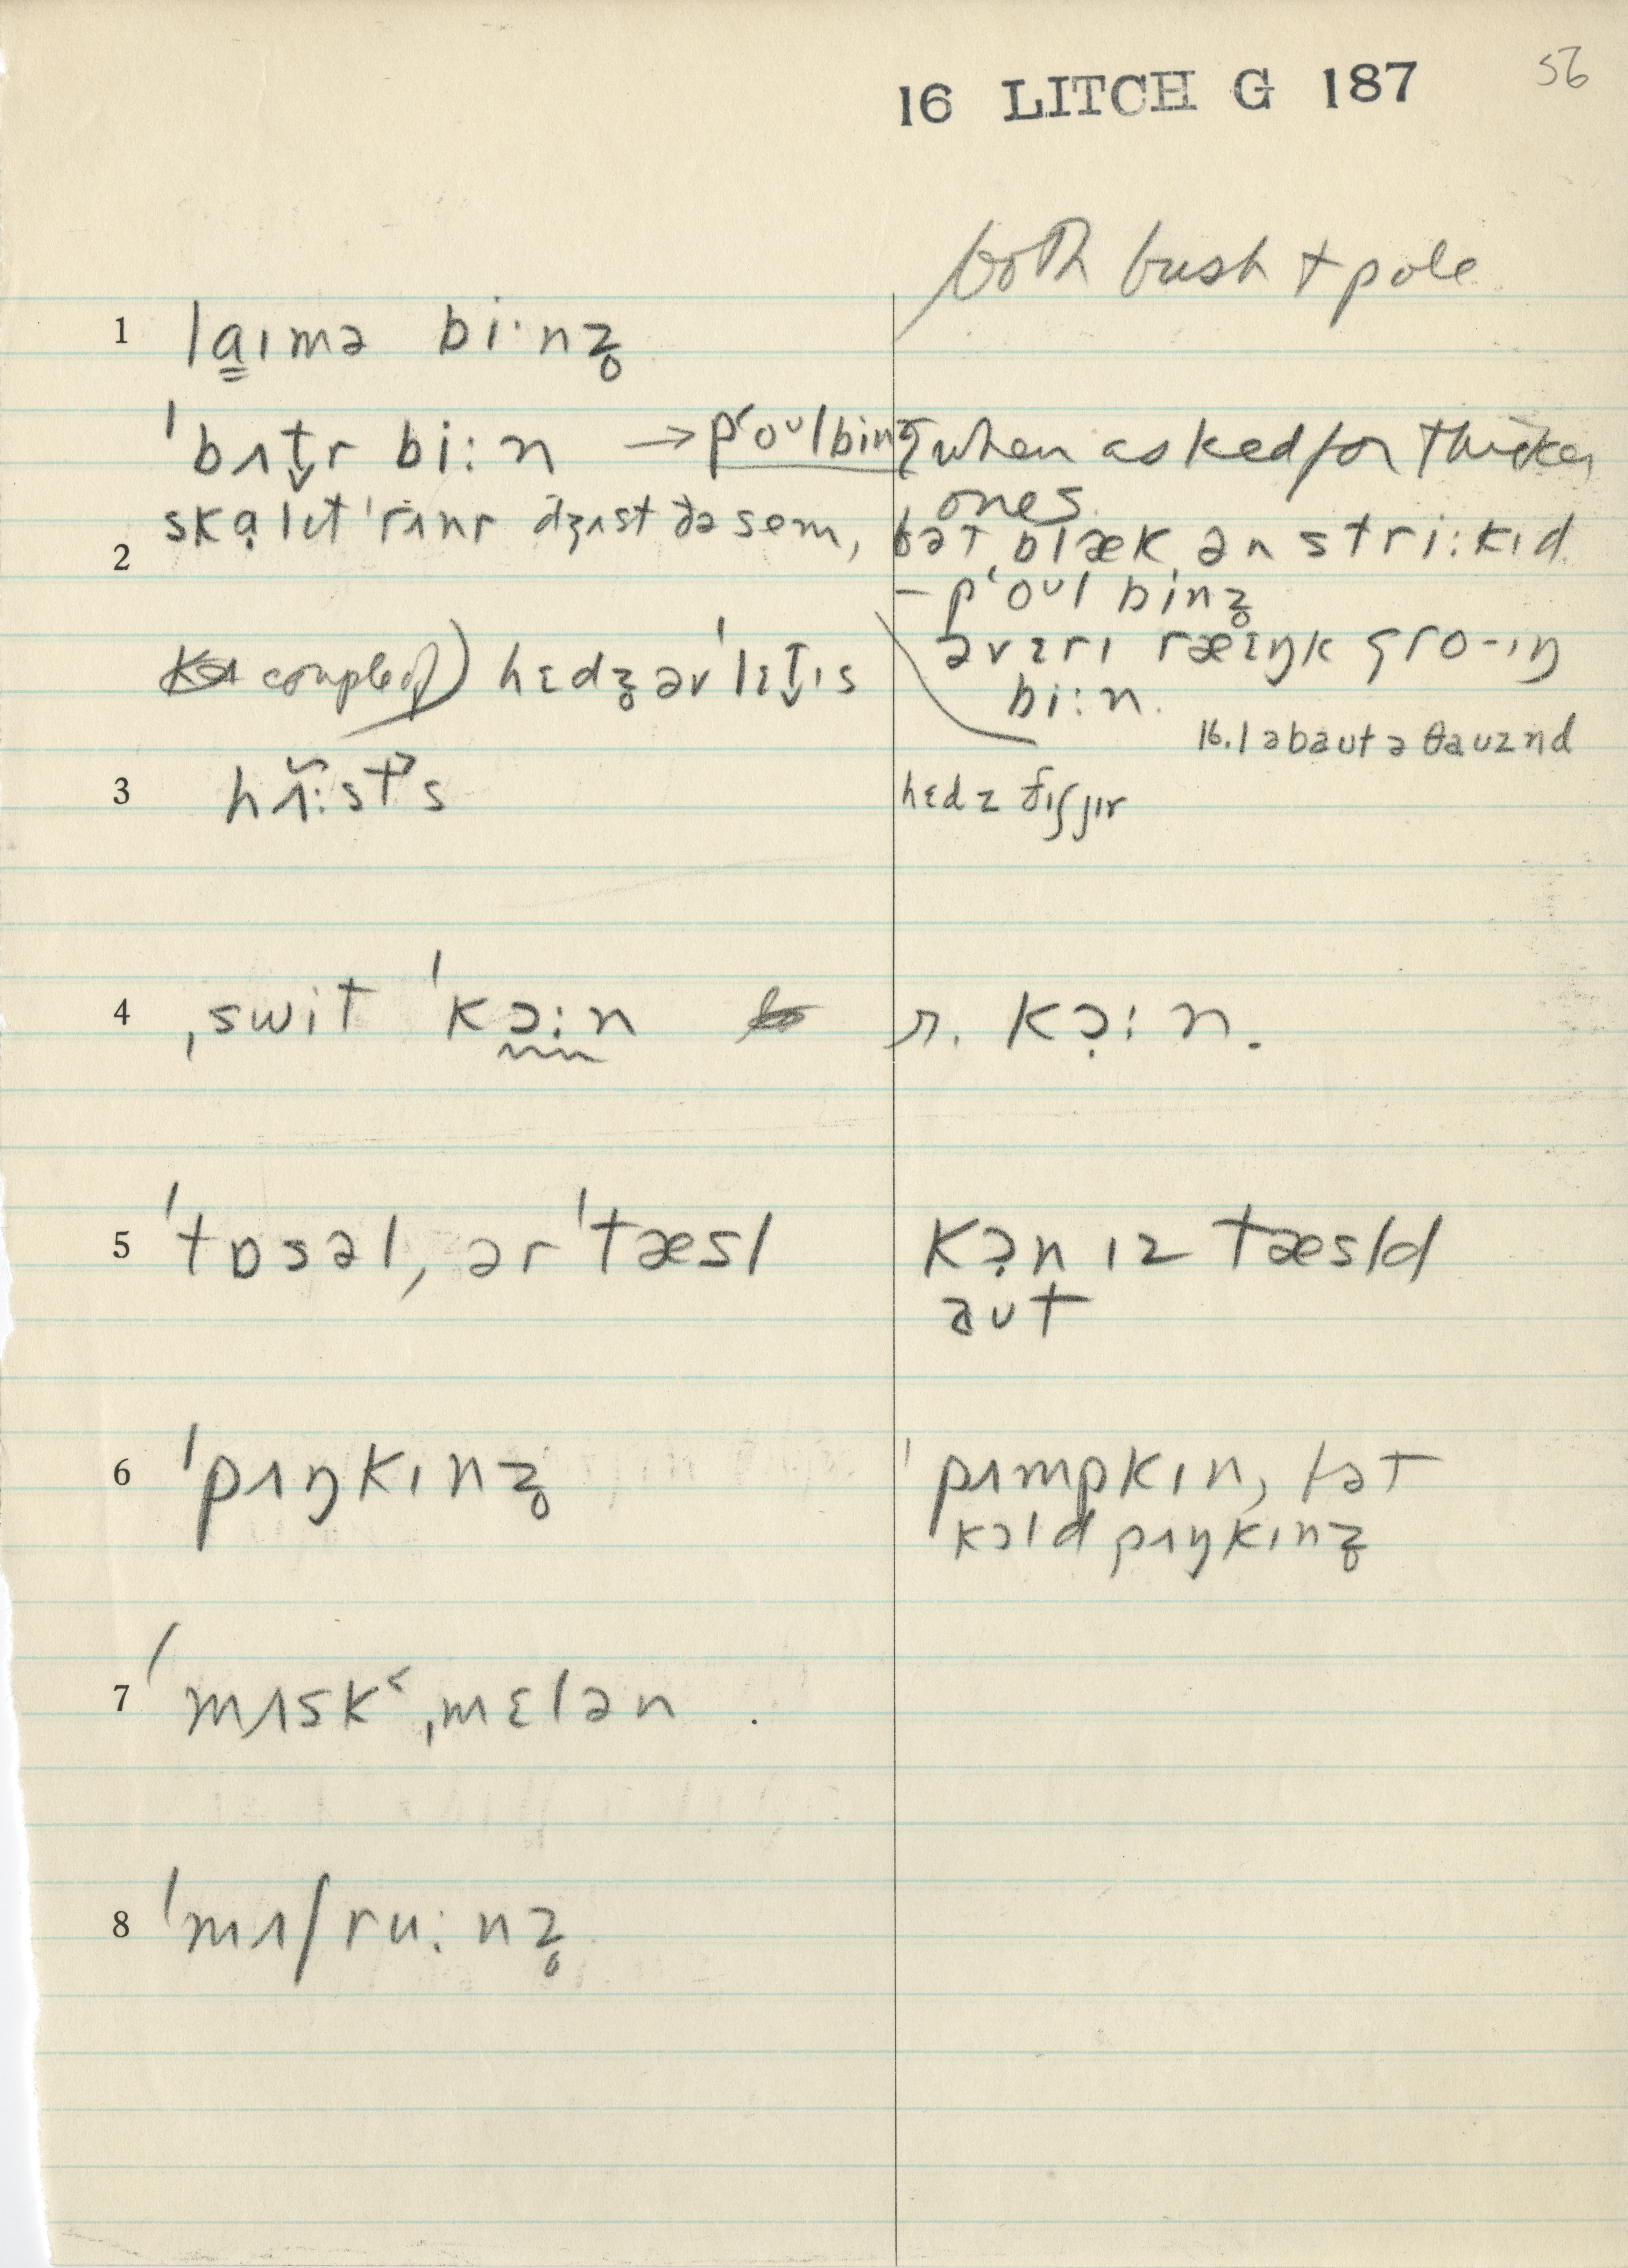 16 LITCH G 187 56
both bush + pole
1 la̳ɪmə bi·nz̥
ˈbʌt̬r bi:n → pʻoᴜlbinz̥ when asked for thicker
ones.
skạlɪt ˈrʌnr dʒʌst ðə sem, bət blæk ən stri:kɪd.
2 – pʻoᴜl binz̥
ə vɛrɪ ræɛŋk gro-ɪŋ
couple of) hɛdz̥ əv ˈlɛt̬ɪs bi:n.
16.1 əbaut ə θauznd
3 hʌ̃:st's hɛdz ðɪʃ jɪr
4 ˌswit ˈkɔ:n r. kɔ̣:n.
5 ˈtɒsəl, ər ˈtæsl kɔ̣n ɪz tæsld
aᴜt
6 ˈpʌŋkɪnz̥ ˈpʌmpkɪn, bət
kɔld pʌŋkɪnz̥
7 ˈmʌskʻˌmɛlən .
8 ˈmʌʃru:nz̥